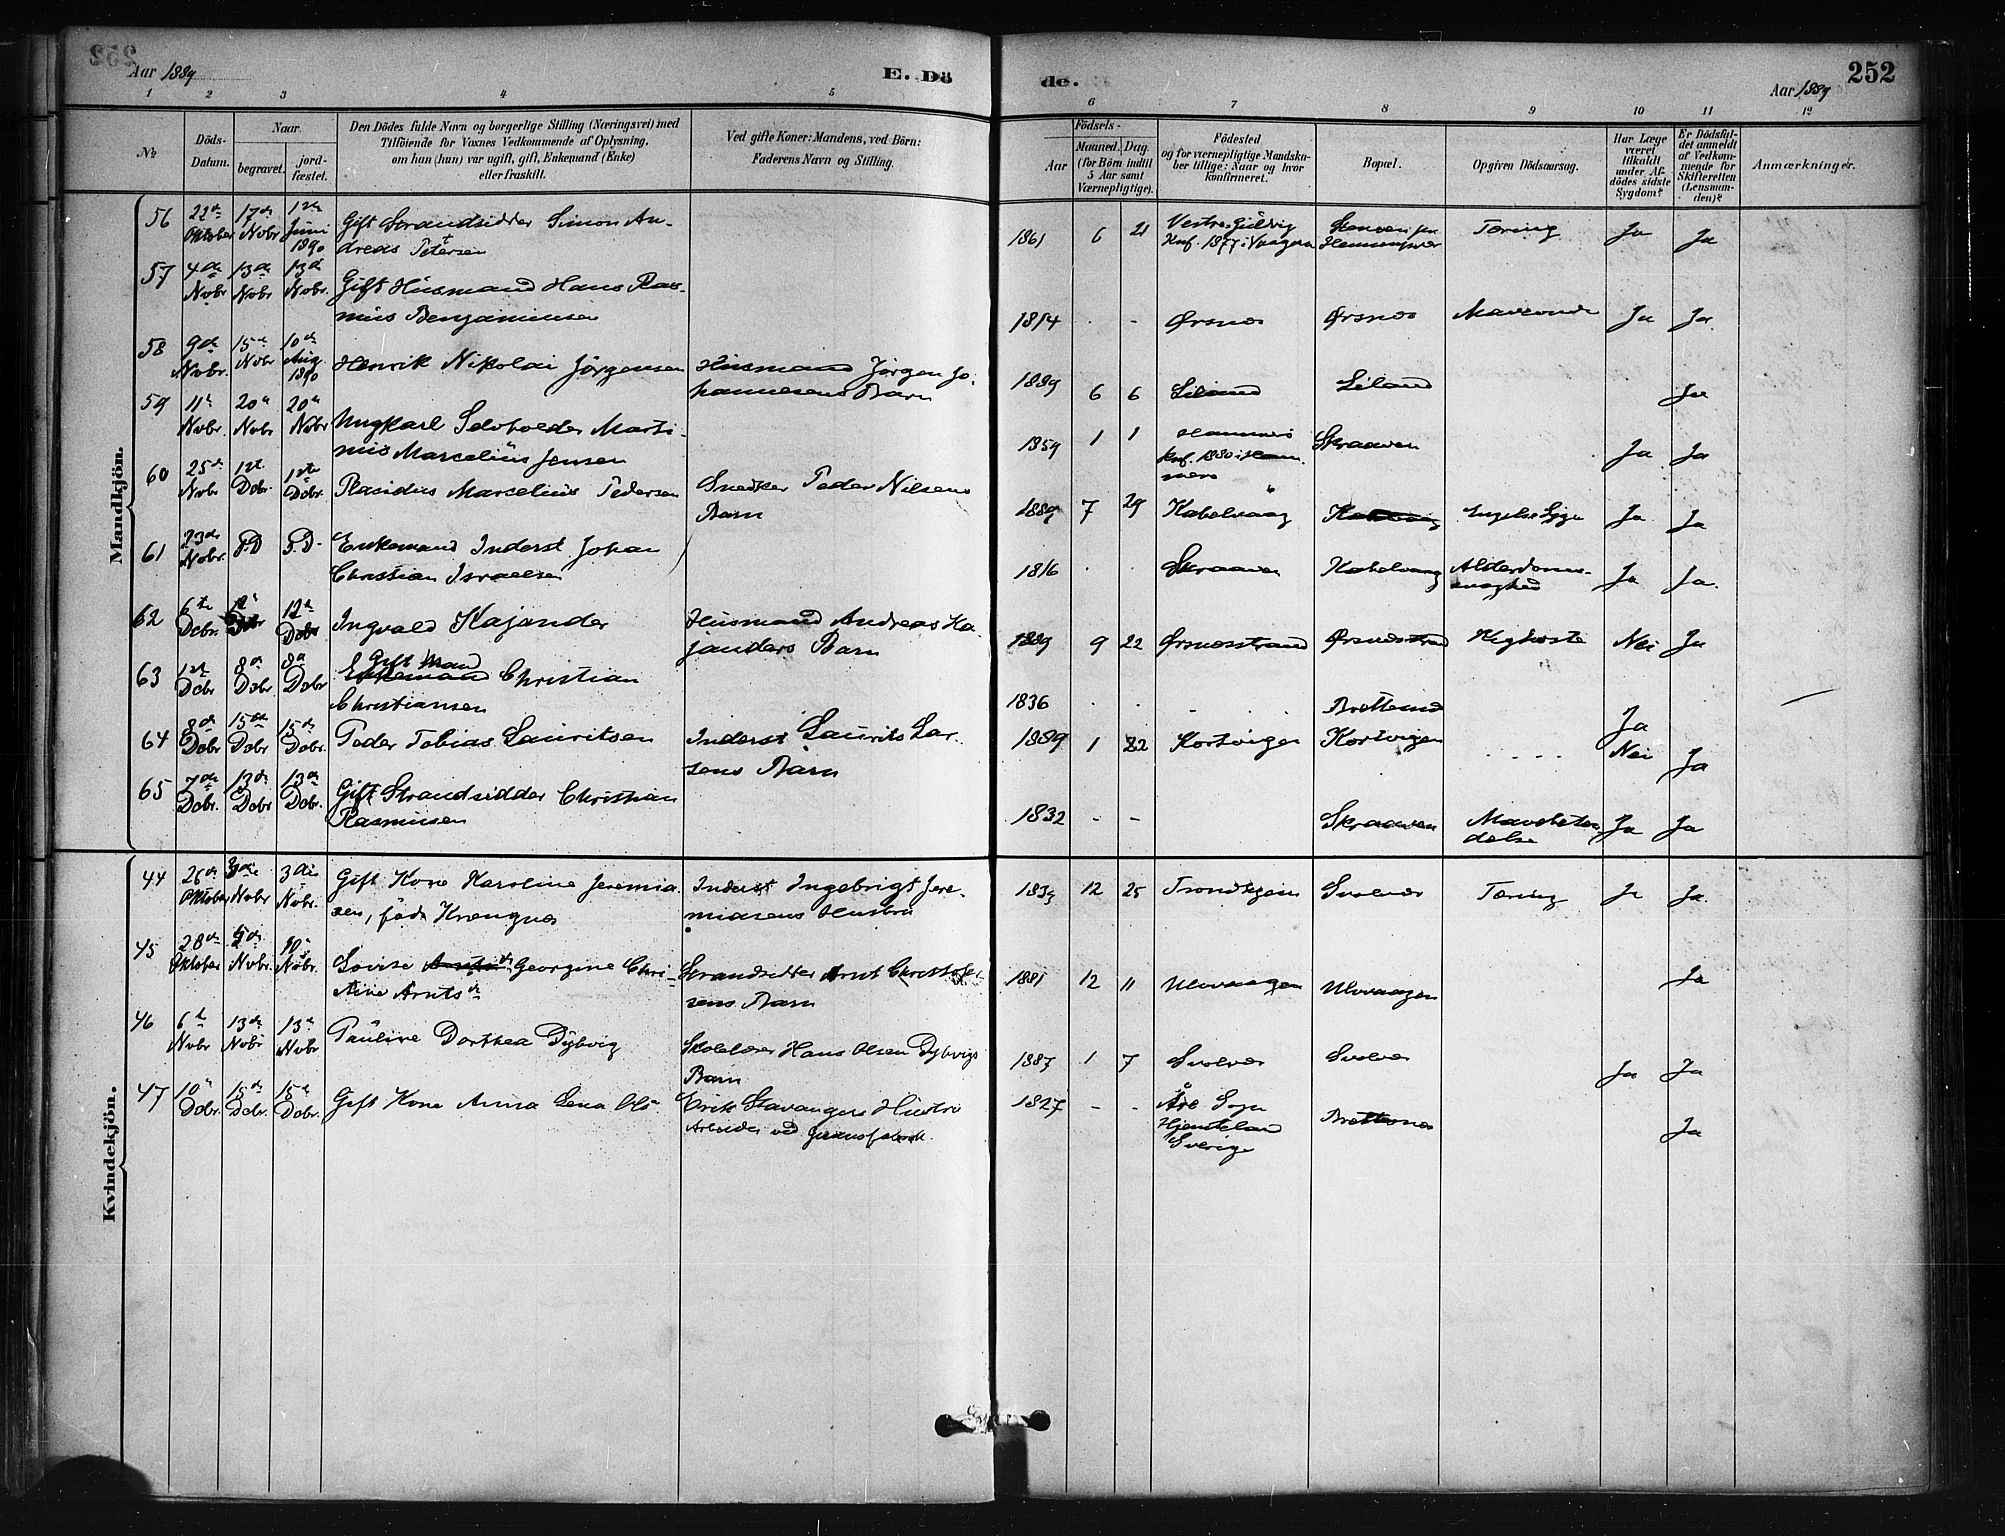 Aar 1889
E. Dö
de.
Aar 1889
252
1 2 3 4 5 6 7 8 9 10 11 12
№
Döds-
Datum.
Naar.
begravet.
jord-
fæstet.
Den Dödes fulde Navn og borgerlige Stilling (Næringsvei) med
Tilföiende for Voxnes Vedkommende af Oplysning,
om han (hun) var ugift, gift, Enkemand (Enke)
eller fraskilt.
Ved gifte Koner: Mandens, ved Börn:
Faderens Navn og Stilling.
Födsels-
Aar
Maaned.
Dag.
(for Börn indtil
5 Aar samt
Værnepligtige).
Födested
og for værnepligtige Mandska-
ber tillige: Naar og hvor
konfirmeret.
Bopæl.
Opgiven Dödsaarsag.
Har Læge
været
tilkaldt
under Af-
dödes sidste
Sygdom?
Er Dödsfal-
det anmeldt
af Vedkom-
mende for
Skifteretten
(Lensman-
den)?
Anmærkninger.
Mandkjön.
56 22de Oktober 17de Nobr 1ste Juni 1890 Gift Strandsidder Simon An-
dreas Petersen
1861 6 21 Vestre
Knf. 1877 i Vaagan Tæring Ja Ja
57 4de Nobr 13de Nobr 13de Nobr. Gift Husmand Hans Ras-
mus Benjaminsen
1814 Ørsnes Ørsnes Ja Ja
58 9de Nobr. 15de Nobr 10de Aug. 1890 Henrik Nikolai Jørgensen Husmand Jørgen Jo-
hannesens Barn
1889 6 6 Liland Liland Ja
59 11te Nobr. 20de Nobr 20de Nobr Ungkarl Marti-
nus Marcelius Jensen
1859 1 1
Knf. 1880 i Skraaven Ja Ja
60 25de Nobr 1ste Dcbr. 1ste Dcbr. Plasidus Marcelius Pedersen Snedker Peder Nilsens
Barn
1889 7 29 Kabelvaag Kabelvaag Engelsk Syge Ja Ja
61 23de Nobr. P.D P.D. Enkemand Inderst Johan
Christian Israelsen
1816 Skraaven Kabelvaag Alderdoms-
svaghed Ja Ja.
62 6te Dcbr. 12te Dcbr 12te Dcbr Ingvald Kajander Husmand Andreas Ka-
janders Barn
1889 9 22 Ørsnesstrand Ørsnesstrand Kighoste Nei Ja
63 1ste Dcbr 8de Dcbr 8de Dcbr Gift Mand
Enkemand Christian
Christiansen
1836 Brettesnes Ja
64 8de Dcbr 15de Dcbr 15de Dcbr. Peder Tobias Lauritsen Inderst Laurits Lar-
sens Barn
1889 1 22 Kortvigen Kortvigen Nei Ja
65 7de Dcbr. 13de Dcbr 13de Dcbr. Gift Strandsidder Christian
Rasmussen
1832 Skraaven Mavebeten-
delse Ja Ja
Kvindekjön.
44 26de Oktober 3die Nobr 3die Nobr. Gift Kone Karoline Jeremia-
sen, født Krengnes Inderst Ingebrigt Jere-
miasens Hustru
12 25 Trondhjem Svolvær Tæring Ja Ja
45 28de Oktober Nobr. 10de Nobr. Lovise Georgine Chri-
stine Arntsdr Strandsidder Arnt Christofer-
sens Barn
1881 12 11 Ulvvaagen Ulvvaagen Ja
46 6te Nobr 13de Nobr 13de Nobr Pauline Dorthea Dybvig Skolelærer Hans Olsen Dybvigs
Barn
1887 1 7 Svolvær Svolvær Ja Ja
47 10de Dcbr. 15de Dcbr. 15de Dcbr. Gift Kone Anna Lena Ols Erik Stavangers Hustru
Arbeider ved Guanofabrik.
1827 Åre Sogn
Sverige Brettesnes Ja